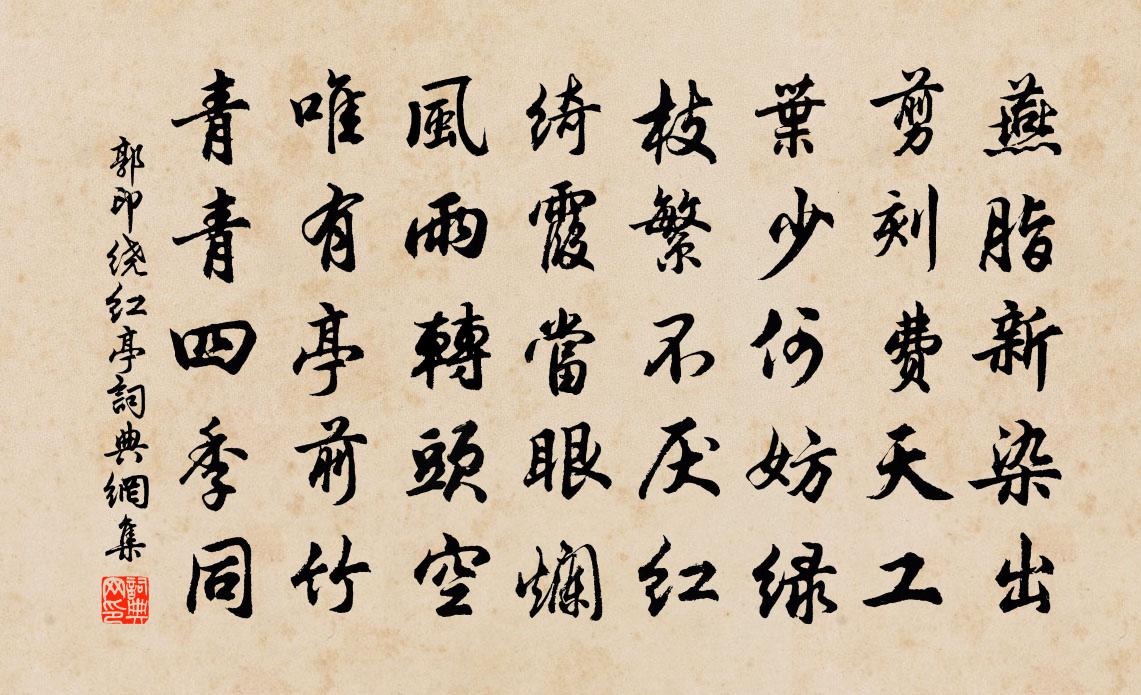 燕脂新染出
剪刻費天工
葉少何妨緑
枝繁不厌紅
綺霞當眼爛
風雨轉頭空
唯有亭前竹
青青四季同
郭印绕红亭詞典網集
詞典网印